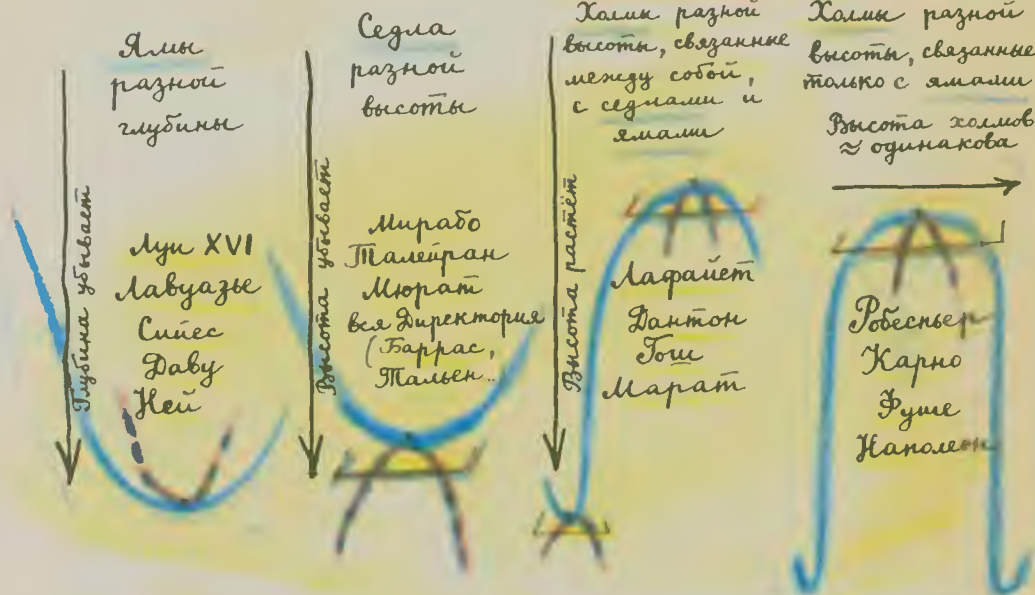 Ямы
разной
глубины
Глубина убывает
Луи XVI
Лавуазье
Сийес
Даву
Ней
Седла
разной
высоты
Высота убывает
Мирабо
Талейран
Мюрат
вся Директория
(Баррас,
Тальен..
Холмы разной
высоты, связанные
между собой,
с седлами и
ямами
Высота растёт
Лафайет
Дантон
Гош
Марат
Холмы разной
высоты, связанные
только с ямами
Высота холмов
≈ одинакова
Робеспьер
Карно
Фуше
Наполеон